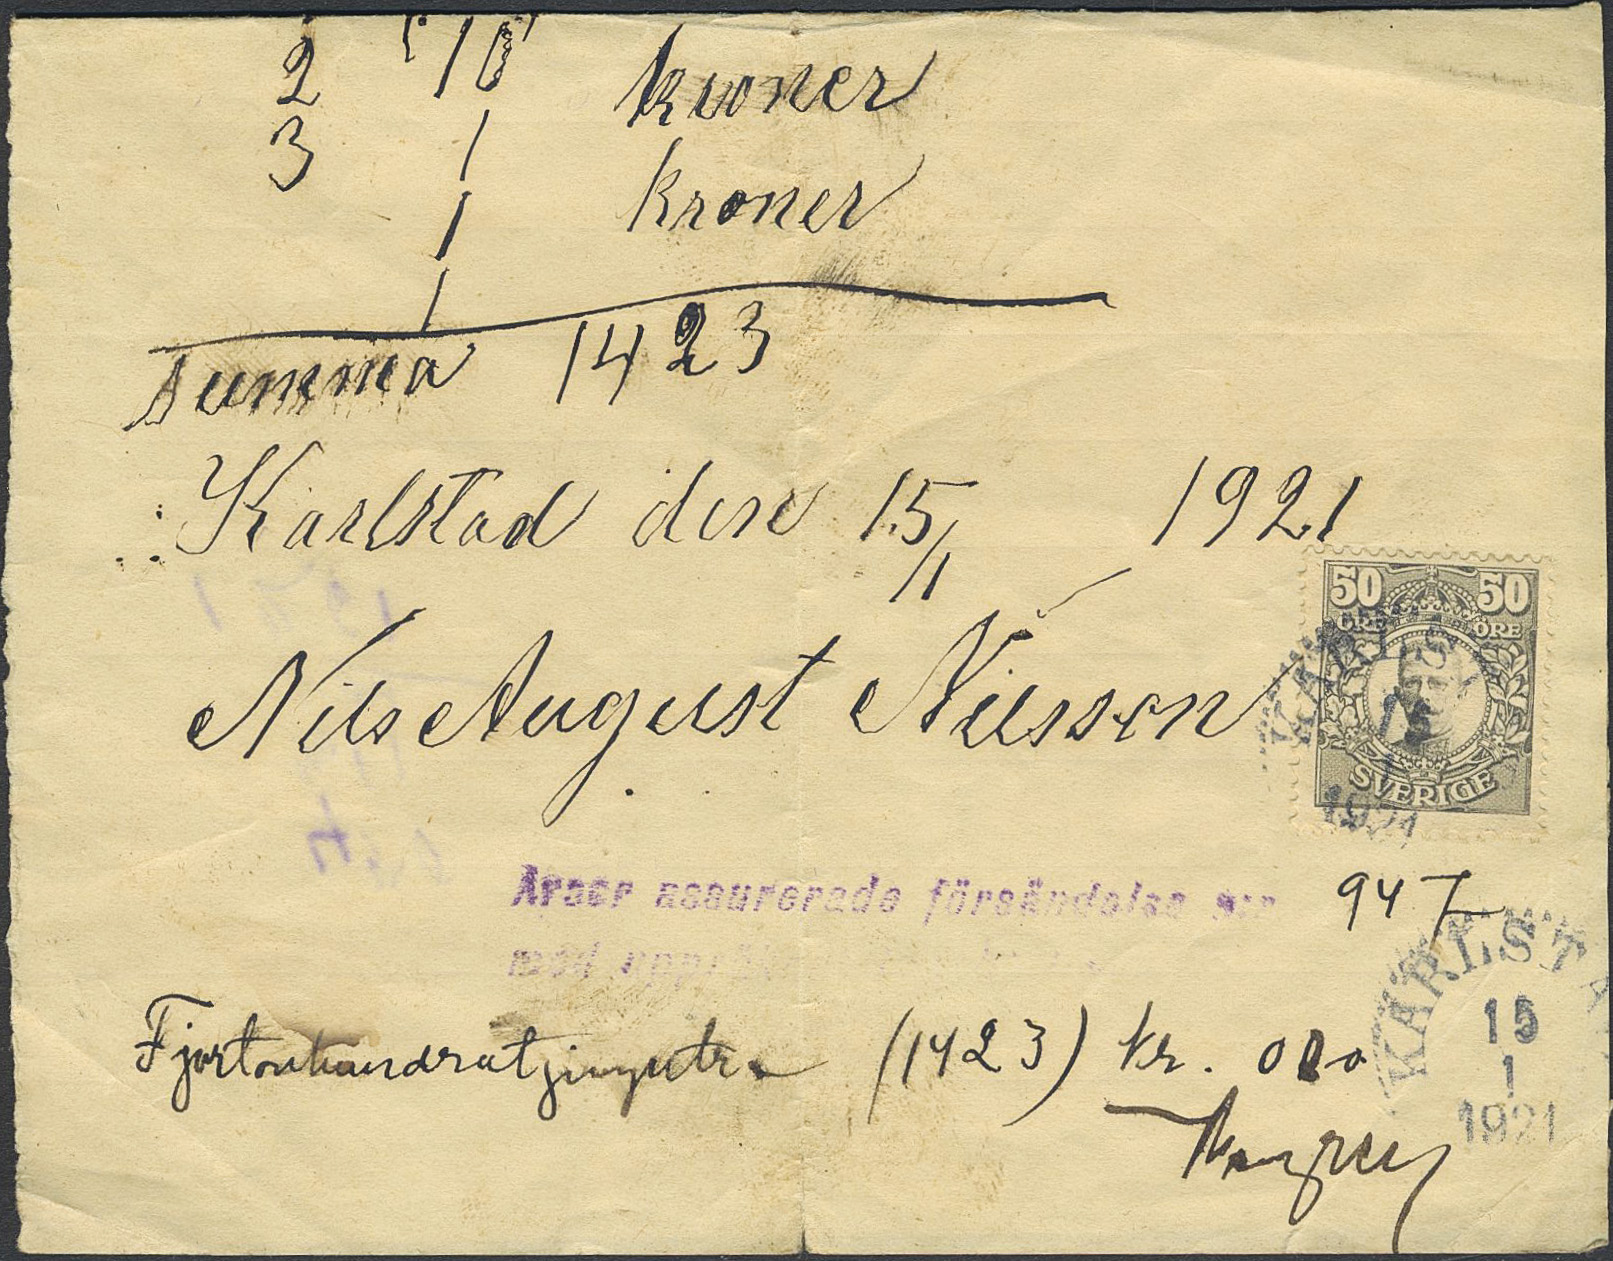 2 10 kroner
3 1 kroner
1
1
summa 1423
Karlstad den 15/1 1921
Nils August Nilsson
50 50
ÖRE ÖRE
SVERIGE
KARLS
15
1
1921
assurerade försändelse
med
947
Fjortonhundratjugutre (1423) kr. 00
KARLSTA
15
1
1921